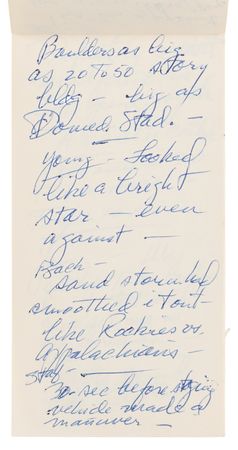 Boulders as big
as 20 to 50 story
bldg - big as
Domed Stad. -
Young - Looked
like a bright
star - even
against -
Bach -
sand storm had
smoothed it out -
like Rockies vs.
Appalachians -
Staf -
30 sec before
vehicle made a
maneuver -